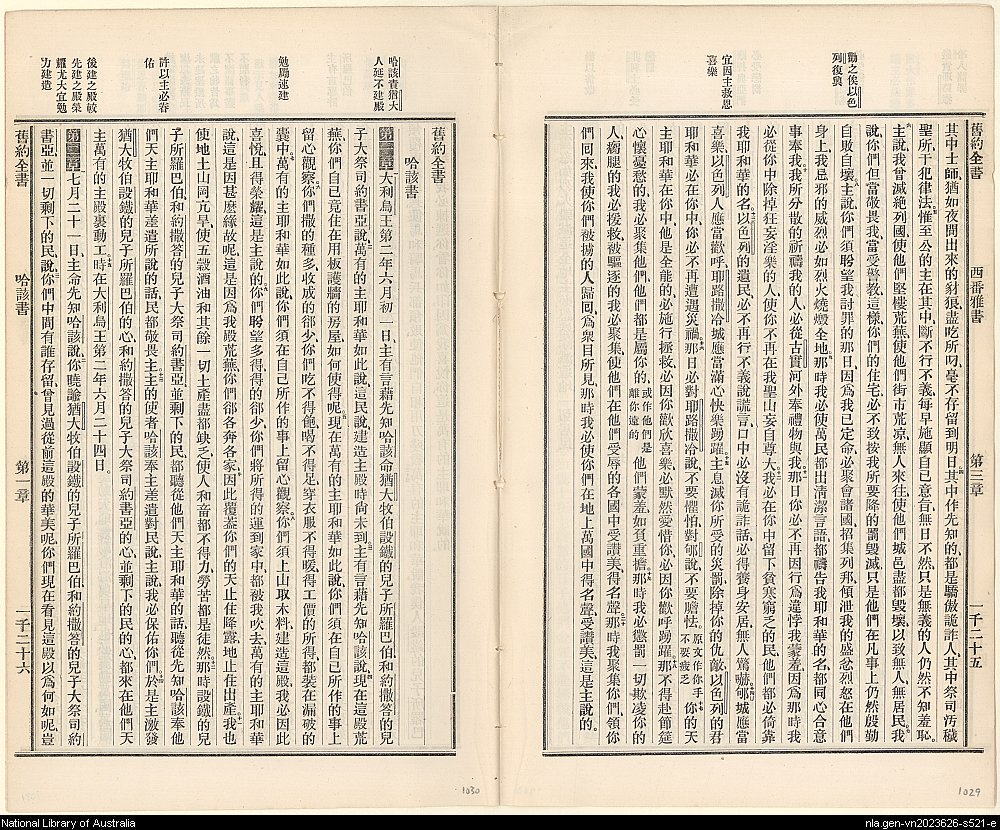 舊約全書 西番雅書 第三章 一千二十五
勸之俟以色
列復興
宜因主救恩
喜樂
其中士師猶如夜間出來的豺狼盡吃所叨毫不存留到明日其中作先知的都是驕傲詭詐人其中祭司汚穢
聖所干犯律法惟至公的主在其中斷不行不義每早施顯自已意旨無日不然只是無義的人仍然不知羞恥
主說我曾滅絶列國使他們堅樓荒蕪使他們街市荒凉無人來往使他們城邑盡都毀壞以致無人無居民我
說你們但當敬畏我當受警教這樣你們的住宅必不致按我所要降的罰毀滅只是他們在凡事上仍然殷勤
自敢自壞主說你們須盼望我討罪的那日因爲我已定命必聚會諸國招集列邦傾泄我的盛忿烈怒在他們
身上我忌邪的威烈必如烈火燒燬全地那時我必使萬民都出淸潔言語都禱告我耶和華的名都同心合意
事奉我我所分散的祈禱我的人必從古實河外奉禮物與我那日你必不再因行爲違悖我蒙羞因爲那時我
必從你中除掉狂妄淫樂的人使你不再在我聖山妄自尊大我必在你中留下貧寒窮乏的民他們都必倚靠
我耶和華的名以色列的遺民必不再行不義說謊言口中必沒有詭詐話必得養身安居無人驚嚇郇城應當
喜樂以色列人應當歡呼耶路撒冷城應當滿心快樂踴躍主息滅你所受的災罰除掉你的仇敵以色列的君
耶和華必在你中你必不再遭遇災禍那日必對耶路撒冷說不要懼怕對郇說不要膽怯原文作你手不要疲乏你的天
主耶和華在你中他是全能的必施行拯救必因你歡欣喜樂必默然愛惜你必因你歡呼踴躍那不得赴節筵
心懷憂愁的我必聚集他們他們都是屬你的或作他們是離你遠的他們蒙羞如負重擔那時我必懲罰一切欺凌你的
人瘸腿的我必援救被驅逐的我必聚集使他們在他們受辱的各國中受讚美得名聲那時我聚集你們領你
們回來我使你們被擄的人歸回爲衆目所見那時我必使你們在地上萬國中得名聲受讚美這是主說的
1029
哈該責猶大
人延不建殿
勉勵速建
許以主必眷
佑
後建之殿較
先建之殿榮
耀尤大宜勉
力建造
舊約全書
哈該書
第一章大利烏王第二年六月初一日主有言藉先知哈該命猶大牧伯設鐵的兒子所羅巴伯和約撒答的兒
子大祭司約書亞說萬有的主耶和華如此說這民說建造主殿時尚未到主有言藉先知哈該說現在這殿荒
蕪你們自已竟住在用板護牆的房屋如何使得呢現在萬有的主耶和華如此說你們須在自已所作的事上
留心觀察你們撒的種多收成的卻少你們吃不得飽喝不得足穿衣服不得暖得工價的所得都裝在漏破的
囊中萬有的主耶和華如此說你們須在自己所作的事上留心觀察你們須上山取木料建造這殿我必因此
喜悅且得榮耀這是主說的你們盼望多得得的卻少你們將所得的運到家中都被我吹去萬有的主耶和華
說這是因甚麽緣故呢這是因爲我殿荒蕪你們卻各奔各家因此覆葢你們的天止住降露地止住出產我也
使地土山岡亢旱使五穀酒油和其餘一切土產盡都缺乏使人和畜都不得力勞苦都是徒然那時設鐵的兒
子所羅巴伯和約撒答的兒子大祭司約書亞並剩下的民都聽從他們天主耶和華的話聽從先知哈該奉他
們天主耶和華差遣所說的話民都敬畏主主的使者哈該奉主差遣對民說主說我必保佑你們於是主激發
猶大牧伯設鐵的兒子所羅巴伯的心和約撒答的兒子大祭司約書亞的心並剩下的民的心都來在他們天
主萬有的主殿裏動工時在大利烏王第二年六月二十四日
第二章七月二十一日主命先知哈該說你曉諭猶大牧伯設鐵的兒子所羅巴伯和約撒答的兒子大祭司約
書亞並一切剩下的民說你們中間有誰存留曾見過從前這殿的華美呢你們現在看見這殿以爲何如呢豈
舊約全書 哈該書 第一章 一千二十六
1030
National Library of Australia
nla.gen-vn2023626-s521-e